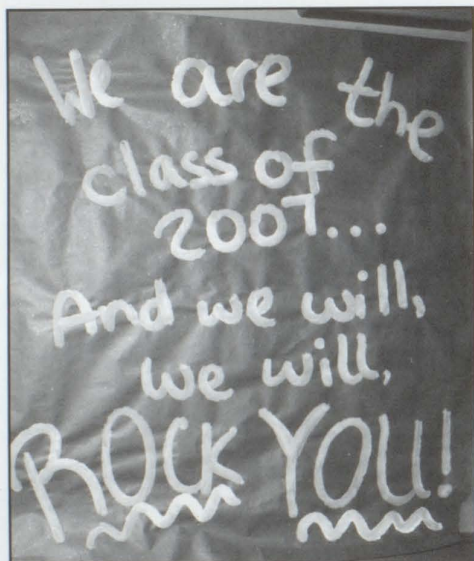 We are the
class of
2007...
And we will,
we will,
ROCK YOU!